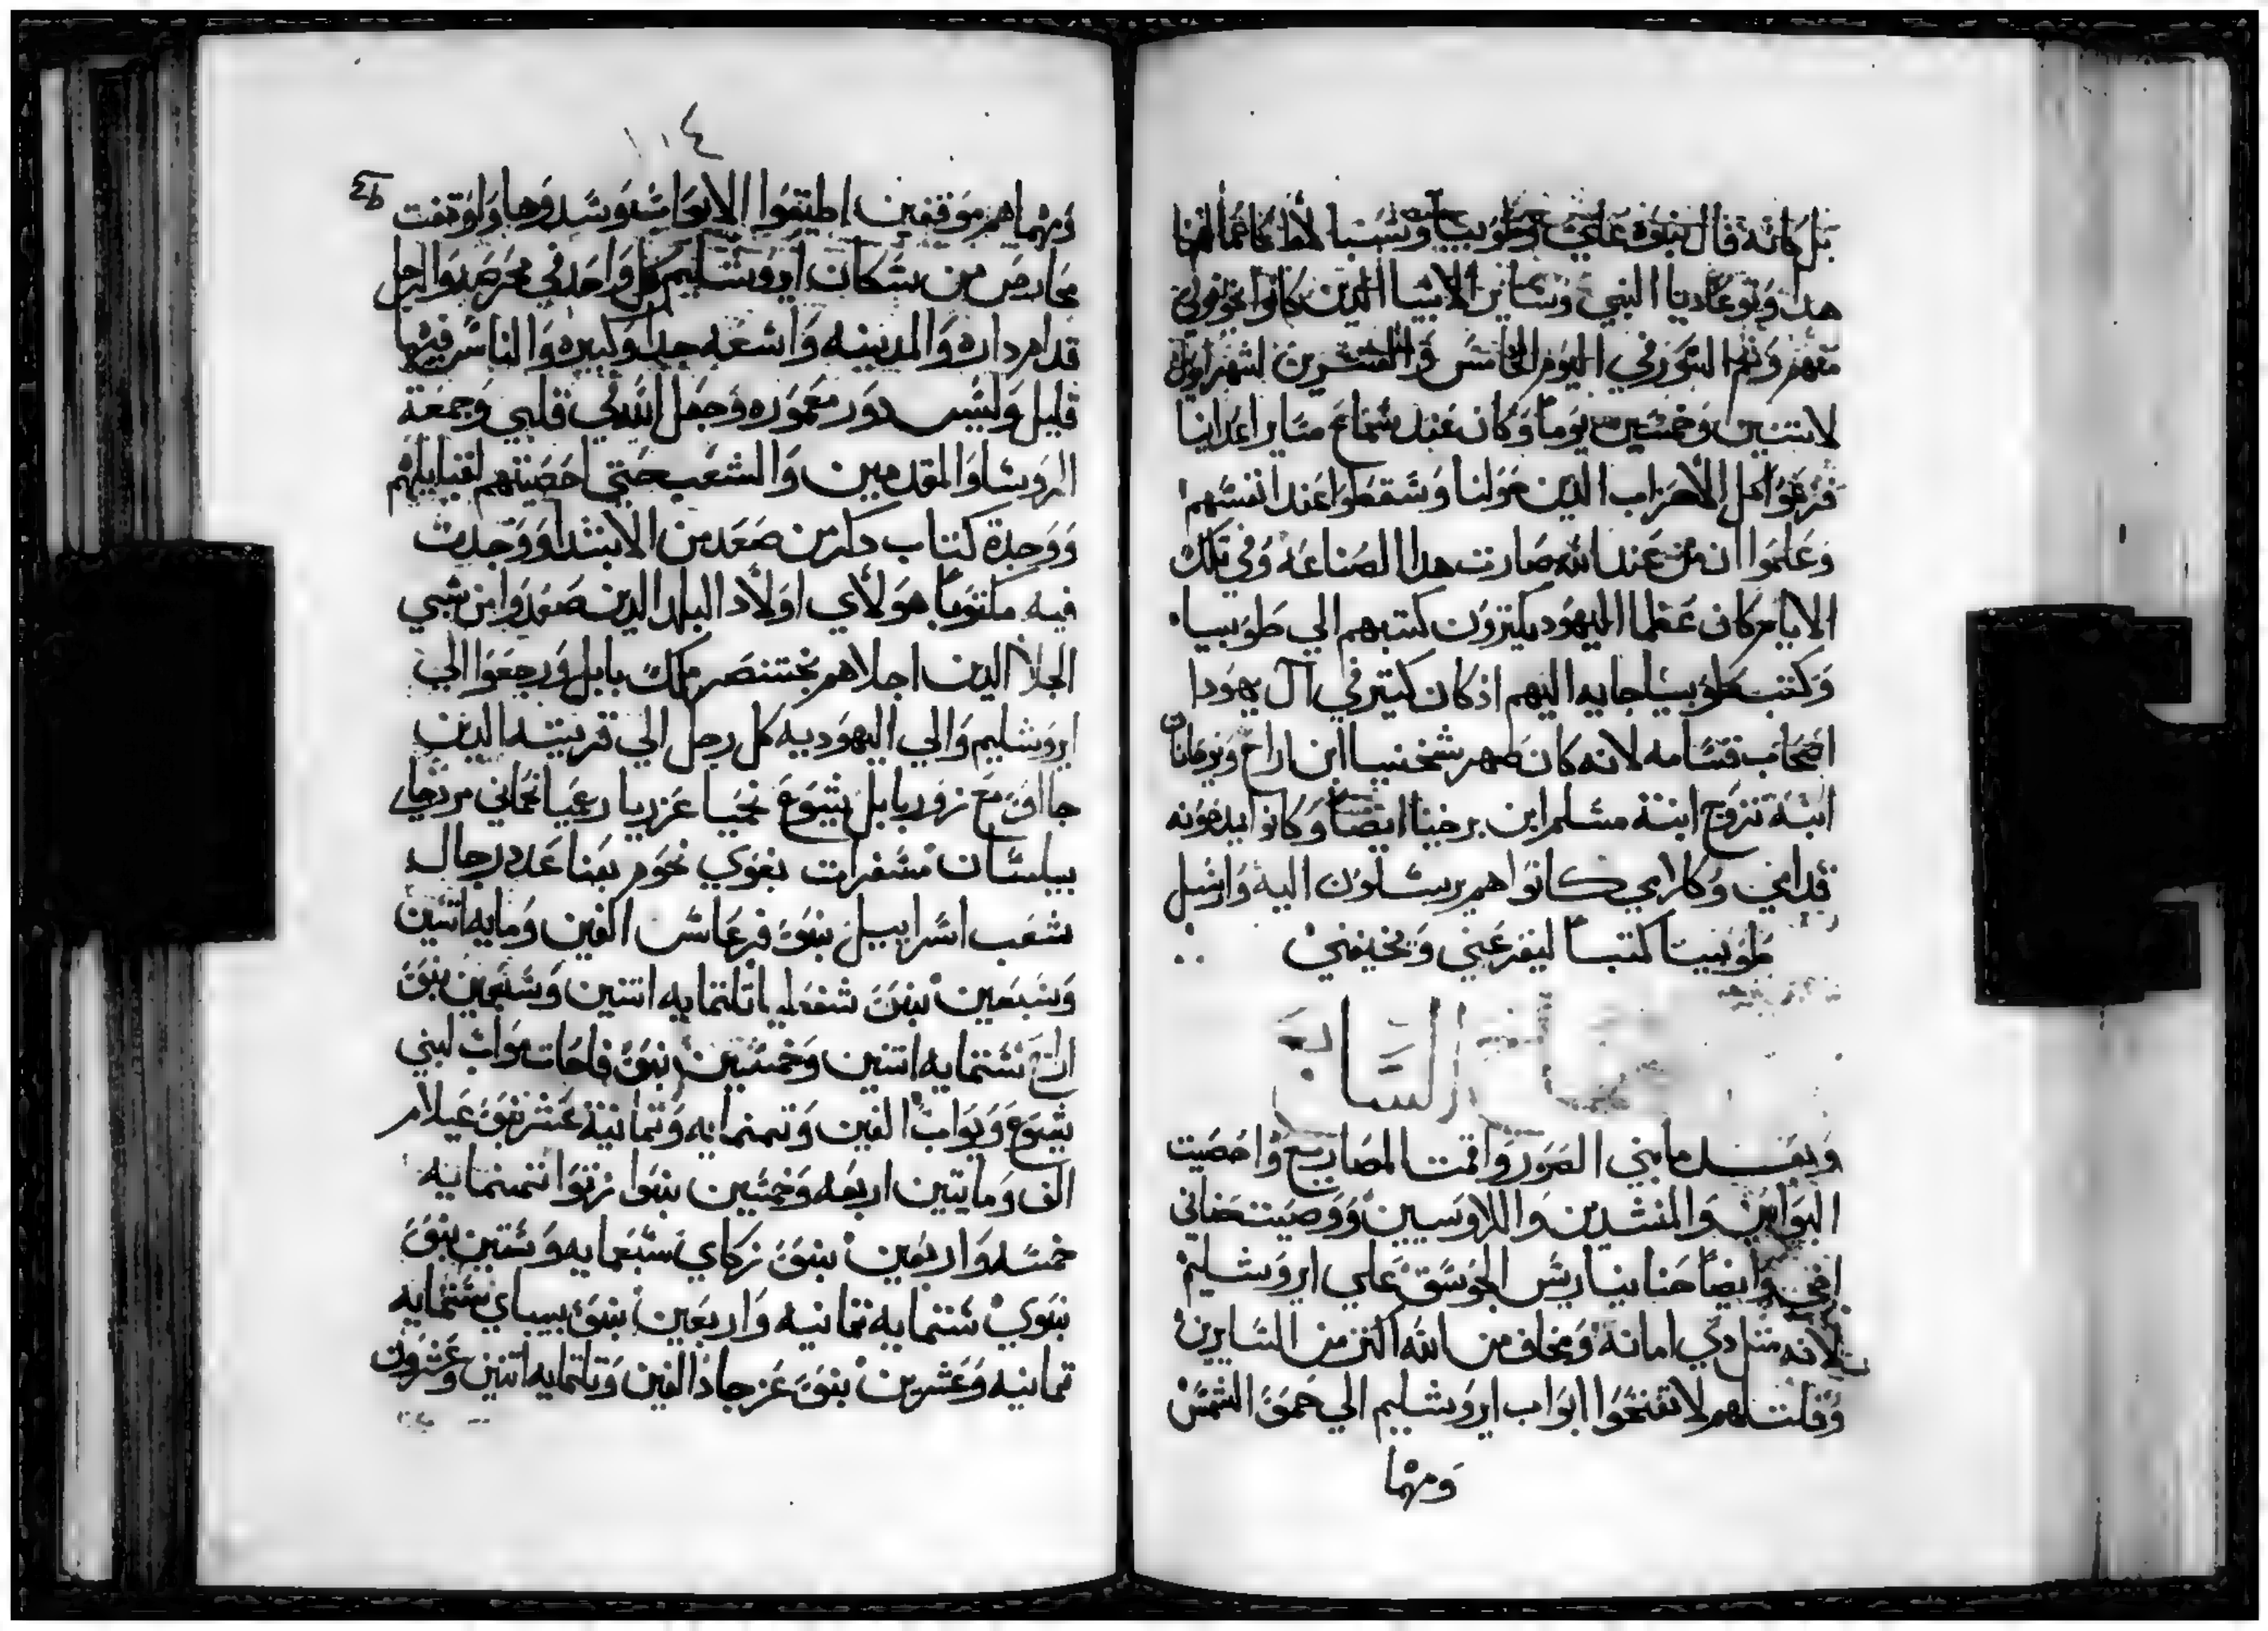 بل كانه قال نبوه علي وطوبيا وسنبلا
هدا ونوعاديا النبي وساير الانبيا الدين كانوا يخوفوني
منهم وتم السور في اليوم الخامس والعشرين لشهر ايلول
لاتنين وخمسين يوما وكان عند سماع ساير اعداينا
فزعوا كل الاحزاب الدين حولنا وسقطوا عند انفسهم
وعلموا ان من عند الله صارت هدا الصناعه وفي تلك
الايام كان عظما اليهود يكترون كتبهم الي طوبيا
وكتب طوبيا جايه اليهم اد كان كتير في ال يهودا
اصحاب قسامه لانه كان صهر شخنيا ابن اراح ويوحانان
ابنه تزوج ابنة مسلم ابن برخيا ايضا وكانوا يدحونه
قدامي وكلامي كانوا هم يرسلون اليه وارسل
طوبيا كتبا ليفزعني ويخيفني
السابه
وبعد ما بني السور واقمت المصاريع واحصيت
البوابين والمنشدين واللاوسيين ووصيت حناني
اخي وايضا حنانيا ريس الجوسق علي ايروشليم
لانه متل دي امانه ويخاف من الله اكتر من السايرين
وقلت لهم لا تفتحوا ابواب ايروشليم الي حمو الشمس
ومهما
١٠٤
ومهما هم موقفين اطبقوا الابواب وسدوها واوقفت
محارص من سكان ايروشليم كل واحد في محرصه والرجل
قدام داره والمدينه واسعه جدا وكبيره والناس فيها
قليل وليس دور معموره وجعل الله في قلبي وجمعة
الروسا والمقدمين والشعب حتي احصيتهم لقبايلهم
ووجدة كتاب دكر من صعد من الابتدا ووجدت
فيه مكتوبا هولاي اولاد البلد الدين صعدوا من سبي
الجلا الدين اجلاهم بختنصر ملك بابل ورجعوا الي
ايروشليم والي اليهوديه كل رجل الي قريته الدين
جاافن مع زوربابل يشوع نحميا عزريا رعميا نحماني مردخاي
بيلسان مسفرات بغوي نحوم بعنا عدد رجال
شعب اسراييل بنو فرعاش الفين ومايه اتنين
وسبعين بنو شفطيا تلتمايه اتنين وسبعين بنو
اراح ستمايه اتنين وخمسين بنو فاحات مواب لبني
يشوع ويواب الفين وتمنمايه وتمانية عشر بنو عيلام
الف ومايتين اربعه وخمسين بنوا زتوا تمنمايه
خمسه واربعين بنو زكاي سبعمايه وستين بنو
بنوي ستمايه تمانيه واربعين بنو بيباي ستمايه
تمانيه وعشرين بنو عزجاد الفين وتلتمايه اتنين وعشرون